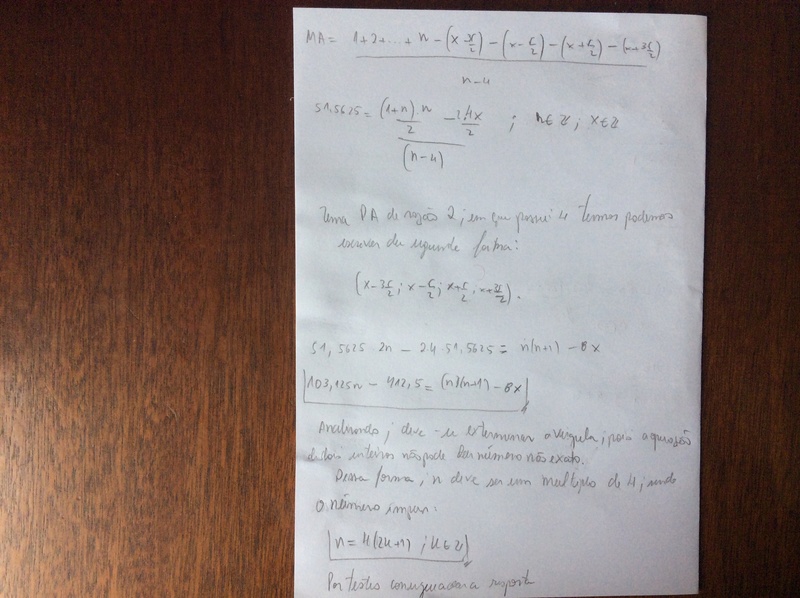 MA = 1+2+...+ n - (x-3r/2) - (x-r/2) - (x+r/2) - (x+3r/2)
n-4
51,5625 = (1+n).n/2 - 2.4x/2 ; n∈Z ; X∈Z
(n-4)
Uma PA de razão 2, em que possui 4 termos podemos
escrever da seguinte forma:
(x-3r/2 ; x-r/2 ; x+r/2 , x+3r/2).
51,5625 2n - 2.4.51,5625 = n(n+1) - 8x
103,125n - 412,5 = (n)(n+1) - 8x
Analisando, deve-se exterminar a vírgula, pois a
de dois inteiros não pode dar número não exato.
Dessa forma, n deve ser um multiplo de 4, sendo
o número impar:
n = 4(2k+1) ; k∈Z
Por testes a resposta